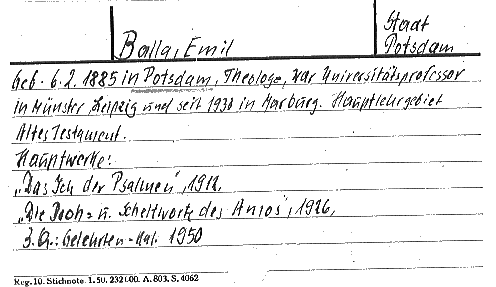 Balla, Emil
Staat
Potsdam
Geb. 6.2.1885 in Potsdam, Theologe, war Universitätsprofessor
in Münster, Leipzig und seit 1930 in Marburg. Hauptlehrgebiet
Altes Testament.
Hauptwerke:
„Das Ich der Psalmen", 1912.
„Die Droh= u. Scheltworte des Amos", 1926.
z.Q.: Gelehrten=Kal. 1950
Reg. 10. Stichnote. 1. 50. 2321.00. A. 803. S. 4062